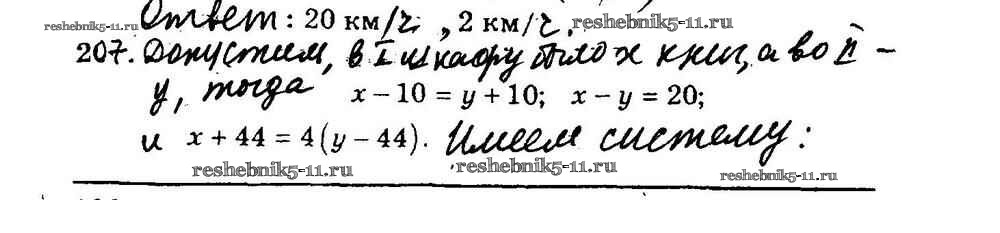 Ответ: 20 км/г, 2 км/г.
reshebnik5-11.ru reshebnik5-11.ru
207. Допустим, в I шкафу было x книг, а во II –
y, тогда x – 10 = y + 10; x – y = 20;
и x + 44 = 4(y – 44). Имеем систему:
reshebnik5-11.ru reshebnik5-11.ru reshebnik5-11.ru